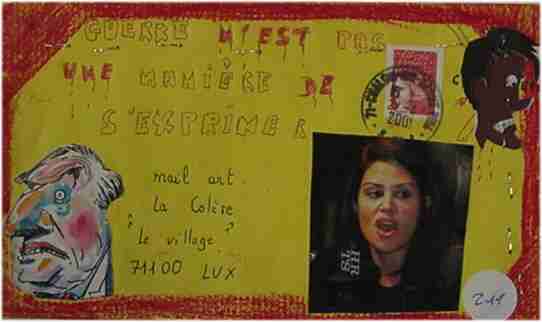 GUERRE N'EST PAS
UNE MANIÈRE DE
S'EXPRIMER
mail art
"La Colère"
le village
71100 LUX
211